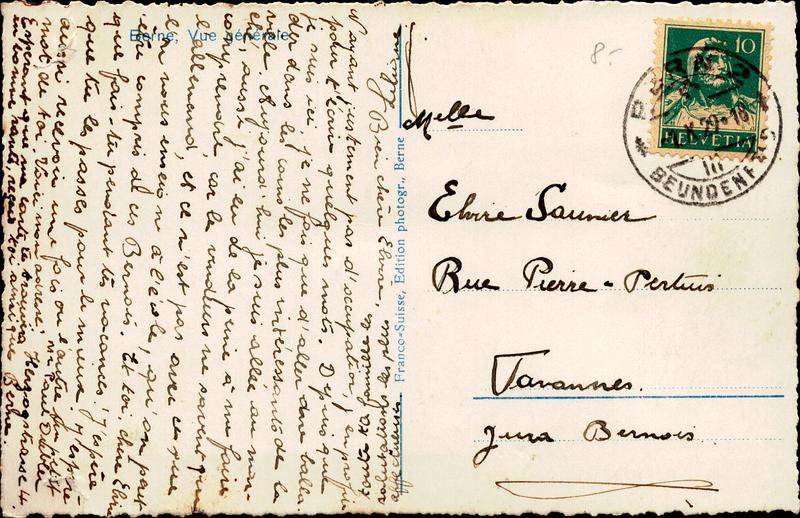 Berne, Vue générale
Ma Bien chère Elvire
N'ayant justement pas d'occupation, j'en profite
pour t'écrire quelques mots. Depuis que
je suis ici, je ne fais que d'aller me balla-
der dans les coins les plus intéressants de la
ville. Aujourd'hui je suis allée au mar-
ché, aussi j'ai eu de la peine à me faire
comprendre, car les vendeurs ne savent que
l'allemand, et ce n'est pas avec ce que
l'on nous enseigne à l'école, qu'on peut
être compris de ces Bernois. Et toi, chère Elvire
que fais-tu pendant tes vacances, j'espère
que tu les passes pour le mieux. J'espère
aussi recevoir une fois ou l'autre un petit
mot de toi. Voici mon adresse:
Herzogstrasse 4
Berne.
Espérant que ma carte te trouvera
en bonne santé reçois ton amie
Franco-Suisse, Edition photogr., Berne
8.-
10
HELVETIA
BERN
BEUNDENFELD
III
Melle
Elvire Saunier
Rue Pierre-Pertuis
Tavannes.
Jura Bernois.